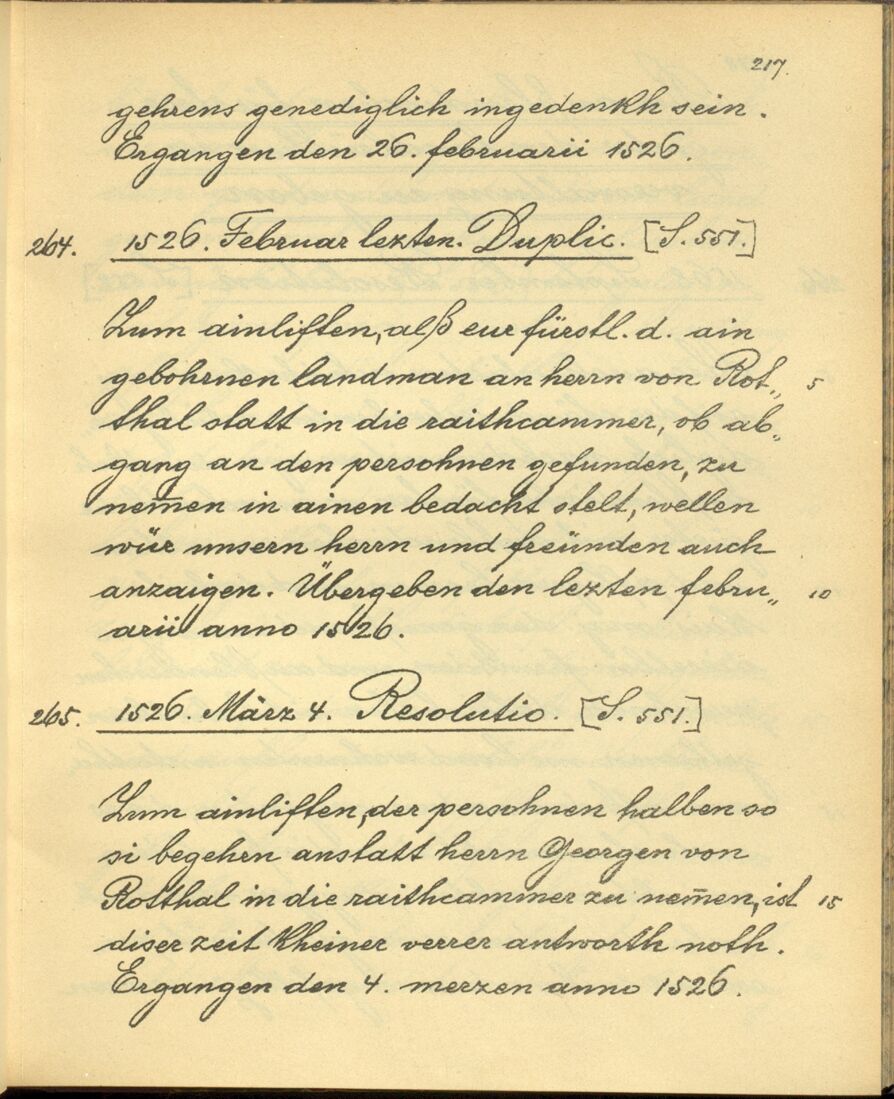 217.
gehrens genediglich ingedenkh sein.
Ergangen den 26. februarii 1526.
264. 1526. Februar lezten. Duplic. [S. 551.]
Zum ainliften, alß eur fürstl. d. ain
gebohrnen landman an herrn von Rot„ 5
thal statt in die raithcammer, ob ab„
gang an den persohnen gefunden, zu
nem̅en in ainen bedacht stelt, wellen
wür unsern herrn und freünden auch
anzaigen. Übergeben den lezten febru„ 10
arii anno 1526.
265. 1526. März 4. Resolutio. [S. 551.]
Zum ainliften, der persohnen halben so
si begehrn anstatt herrn Georgen von
Rotthal in die raithcammer zu nem̅en, ist 15
diser zeit kheiner verrer antworth noth.
Ergangen den 4. merzen anno 1526.